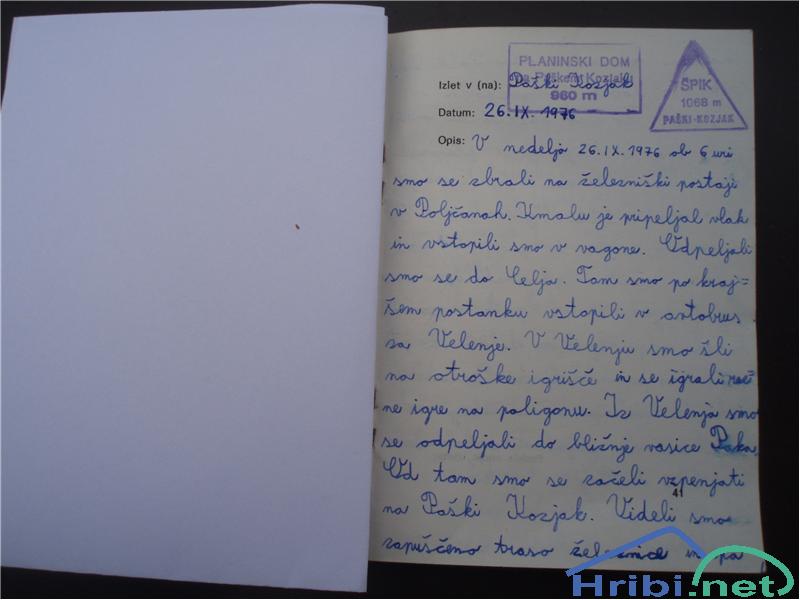 PLANINSKI DOM
na Paškem Kozjaku
960 m
ŠPIK
1068 m
PAŠKI-KOZJAK
Izlet v (na): Paški Kozjak
Datum: 26.IX.1976
Opis: V nedeljo 26.IX.1976 ob 6 uri
smo se zbrali na železniški postaji
v Poljčanah. Kmalu je pripeljal vlak
in vstopili smo v vagone. Odpeljali
smo se do Celja. Tam smo po kraj=
šem postanku vstopili v avtobus
za Velenje. V Velenju smo šli
na otroške igrišče in se igrali raz-
ne igre na poligonu. Iz Velenja smo
se odpeljali do bližnje vasice Paka.
Od tam smo se začeli vzpenjati
41
na Paški Kozjak. Videli smo
zapuščeno traso železnice in pa
Hribi.net